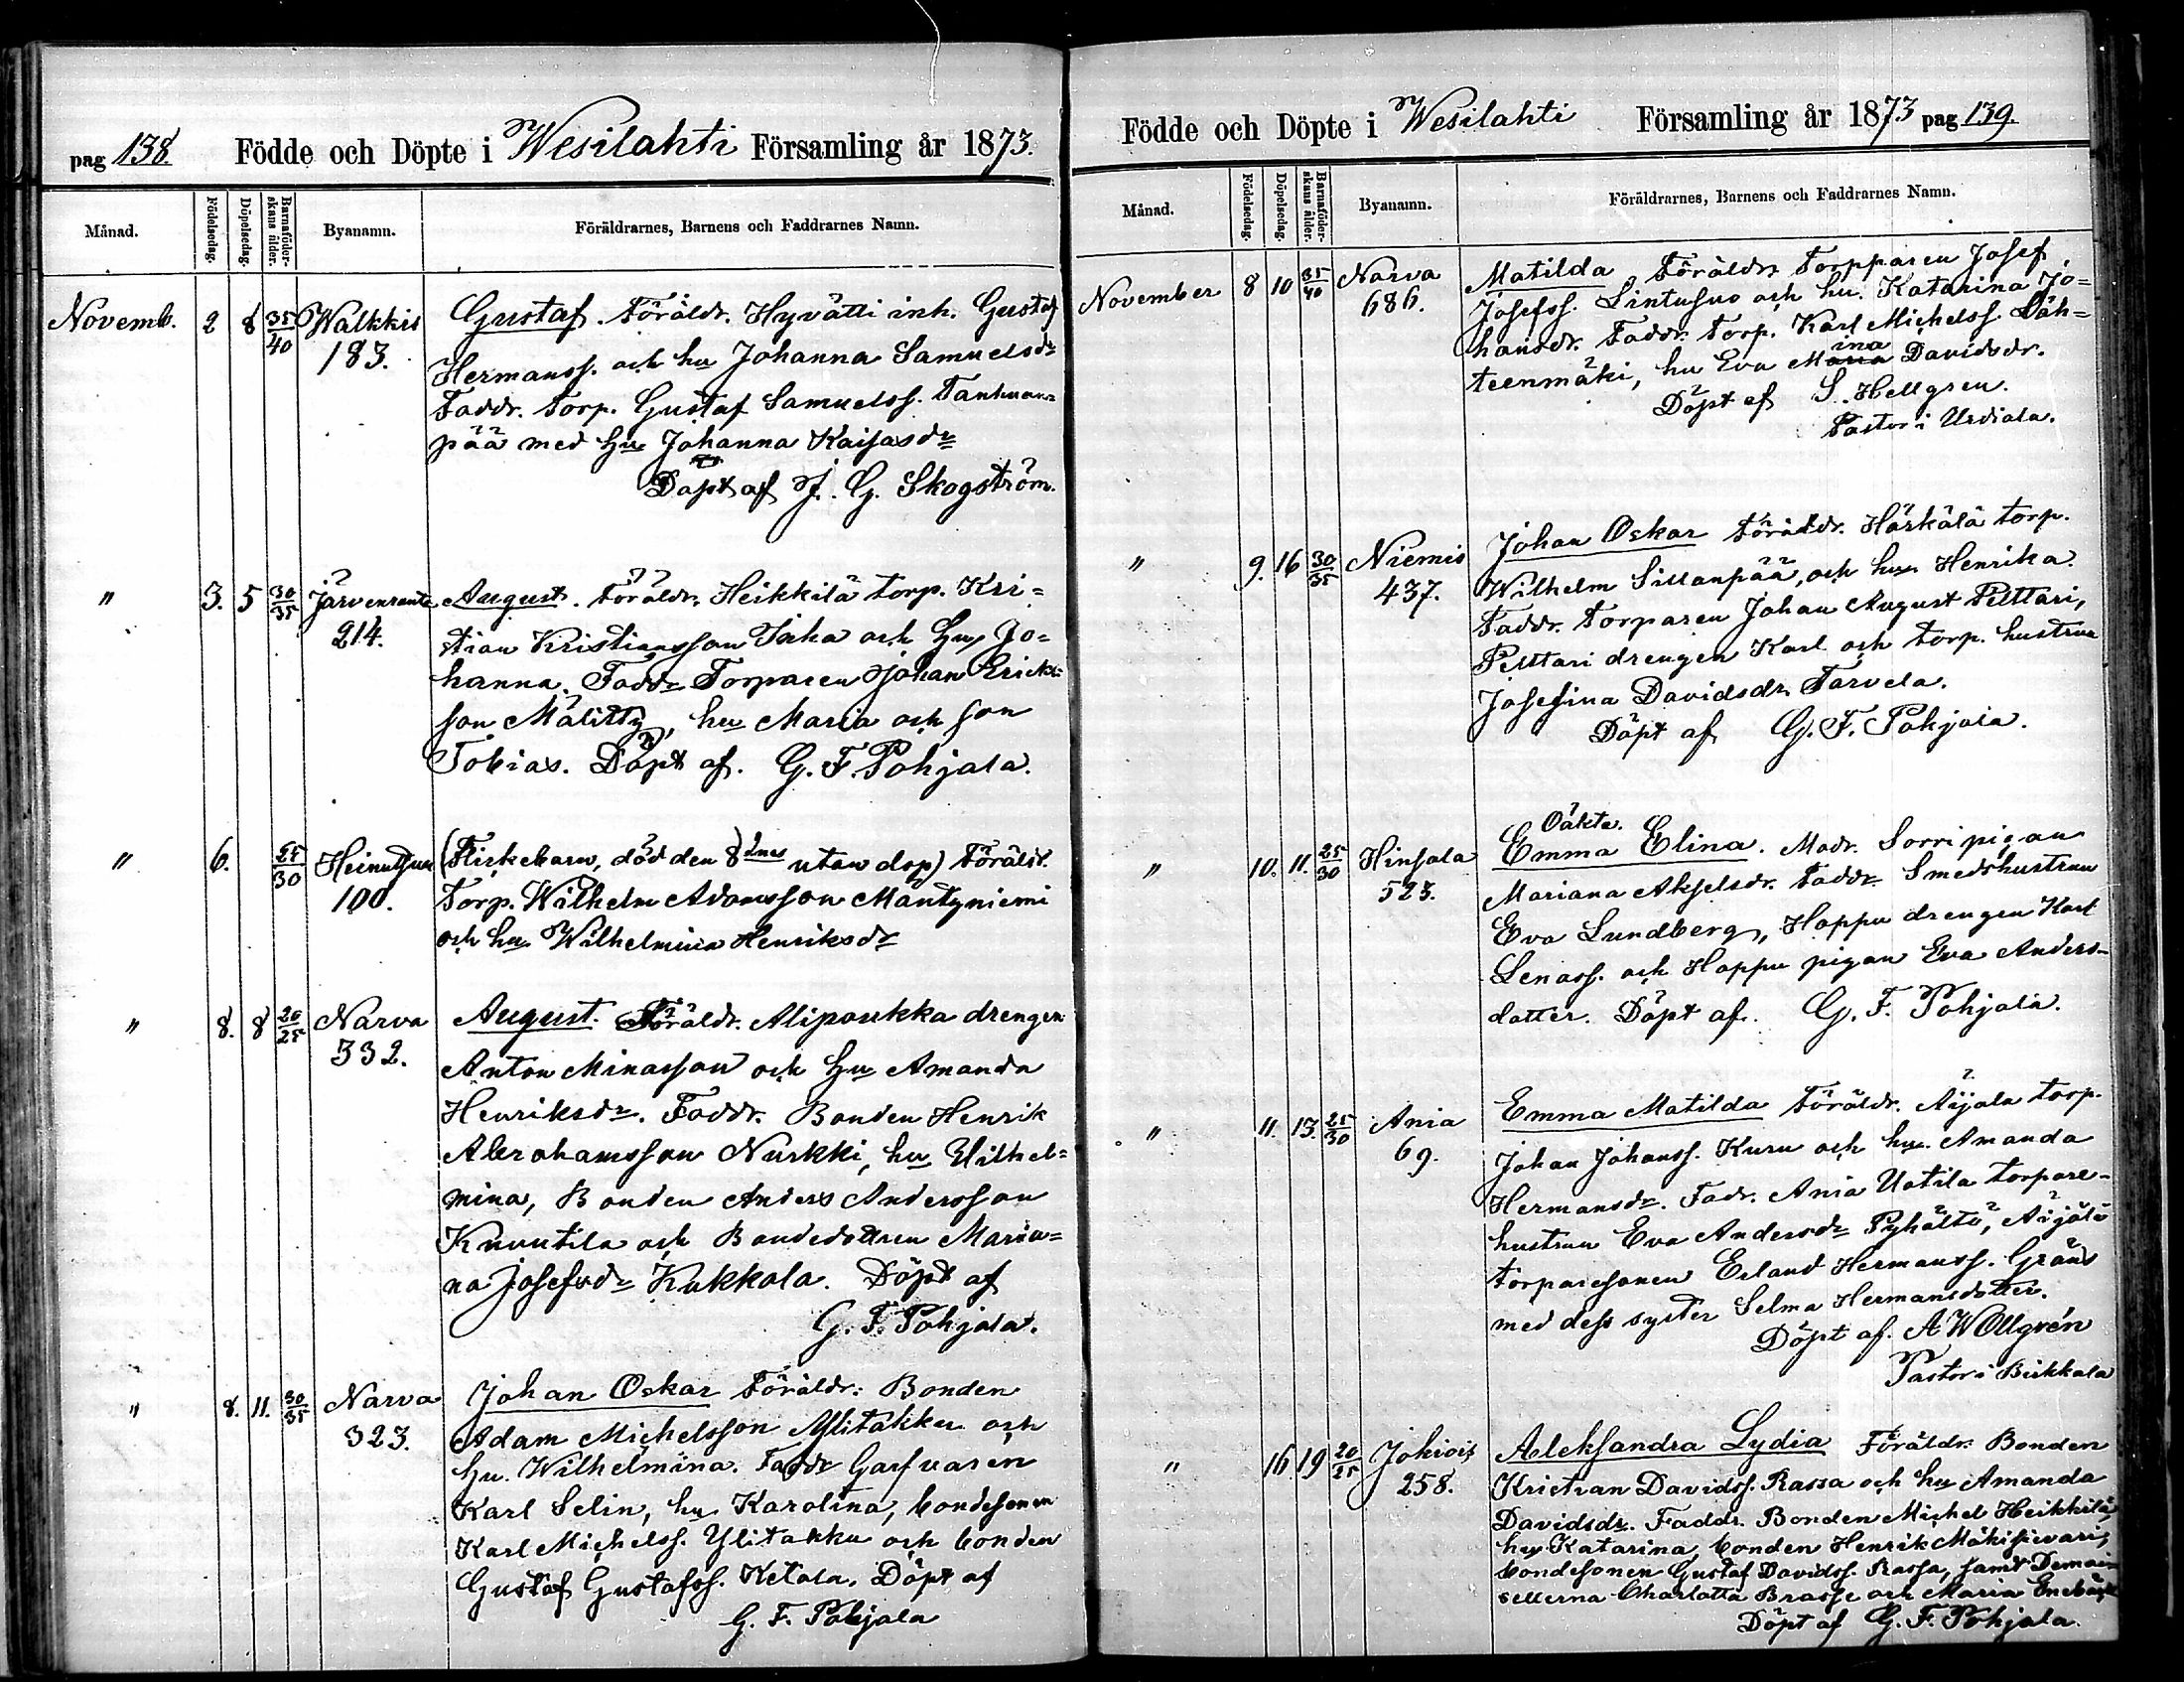 pag 138 Födde och Döpte i Wesilahti Församling år 1873.
Månad. Födelsedag. Döpelsedag. Barnaföderskans ålder. Byanamn. Föräldrarnes, Barnens och Faddrarnes Namn.
Novemb. 2 8 35/40 Walkkis 183. Gustaf. Föräldr. Hyvätti inh. Gustaf
Hermanss. och hu Johanna Samuelsdr
Faddr. Torp. Gustaf Samuelss. Tanhuan=
pää med hu Johanna Kaisasdr
Döpt af J. G. Skogström.
" 3. 5 30/35 Järvenranta 214. August. Föräldr. Heikkilä torp. Kri=
stian Kristiansson Taka och hu Jo=
hanna. Faddr Torparen Johan Ericks=
son Mälitty, hu Maria och son
Tobias. Döpt af. G. F. Pohjala.
" 6. 25/30 100. (Flickebarn, död den 8dnes utan dop) Föräldr.
Torp. Wilhelm Adamsson Mäntyniemi
och hu Wilhelmina Henriksdr
" 8. 8 20/25 Narva 332. August. Föräldr. Alipoukka drengen
Anton Minasson och hu Amanda
Henriksdr. Faddr. Bonden Henrik
Abrahamsson Nurkki, hu Wilhel=
mina, Bonden Anders Andersson
Knuutila och Bondedottren Maria=
na Josefsdr Kukkola. Döpt af
G. F. Pohjala.
" 8. 11. 30/35 Narva 323. Johan Oskar Föräldr: Bonden
Adam Michelsson Ylitakku och
hu. Wilhelmina. Faddr Garfvaren
Karl Selin, hu Karolina, bondesonen
Karl Michelss. Ylitakku och bonden
Gustaf Gustafss. Ketola. Döpt af
G. F. Pohjala
Födde och Döpte i Wesilahti Församling år 1873 pag 139
Månad. Födelsedag. Döpelsedag. Barnaföderskans ålder. Byanamn. Föräldrarnes, Barnens och Faddrarnes Namn.
November 8 10 35/40 Narva 686. Matilda Föräldr. Torpparen Josef
Josefss. Lintusuo och hu. Katarina Jo=
hansdr. Faddr. Torp. Karl Michelss. Läh=
teenmäki, hu Eva Maria ina Davidsdr.
Döpt af S. Hellgren.
Pastor i Urdiala.
" 9. 16 30/35 Niemis 437. Johan Oskar Föräldr. Härkälä torp.
Wilhelm Sillanpää, och hu Henrika.
Faddr. Torparen Johan August Pelttari,
Pelttari drengen Karl och torp. hustrun
Josefina Davidsdr Tarvela.
Döpt af G. F. Pohjala.
" 10. 11. 25/30 Hinsala 523. Oäkta.
Emma Elina. Modr. Sorri pigan
Mariana Akselsdr. Faddr Smedshustrun
Eva Lundberg, Hoppu drengen Karl
Lenass. och Hoppu pigan Eva Anders-
dotter. Döpt af. G. F. Pohjala.
" 11. 13. 25/30 Ania 69. Emma Matilda Föräldr. Äijälä torp.
Johan Johanss. Kuru och hu. Amanda
Hermansdr. Fadr. Ania Uotila torpare-
hustrun Eva Andersdr Pyhältö, Äijälä
torparesonen Erland Hermanss. Gränd
med dess syster Selma Hermansdotter.
Döpt af. A W Ollgrén
Pastor i Birkkala
" 16 19 20/25 Jokiois 258. Aleksandra Lydia Föräldr. Bonden
Kristian Davidss. Rassa och hu Amanda
Davidsdr. Faddr. Bonden Michel Heikkilä,
hu Katarina, bonden Henrik
bondesonen Gustaf Davidss. Rassa, samt Demoi=
sellerna Charlotta Brasse och Maria
Döpt af G. F. Pohjala.